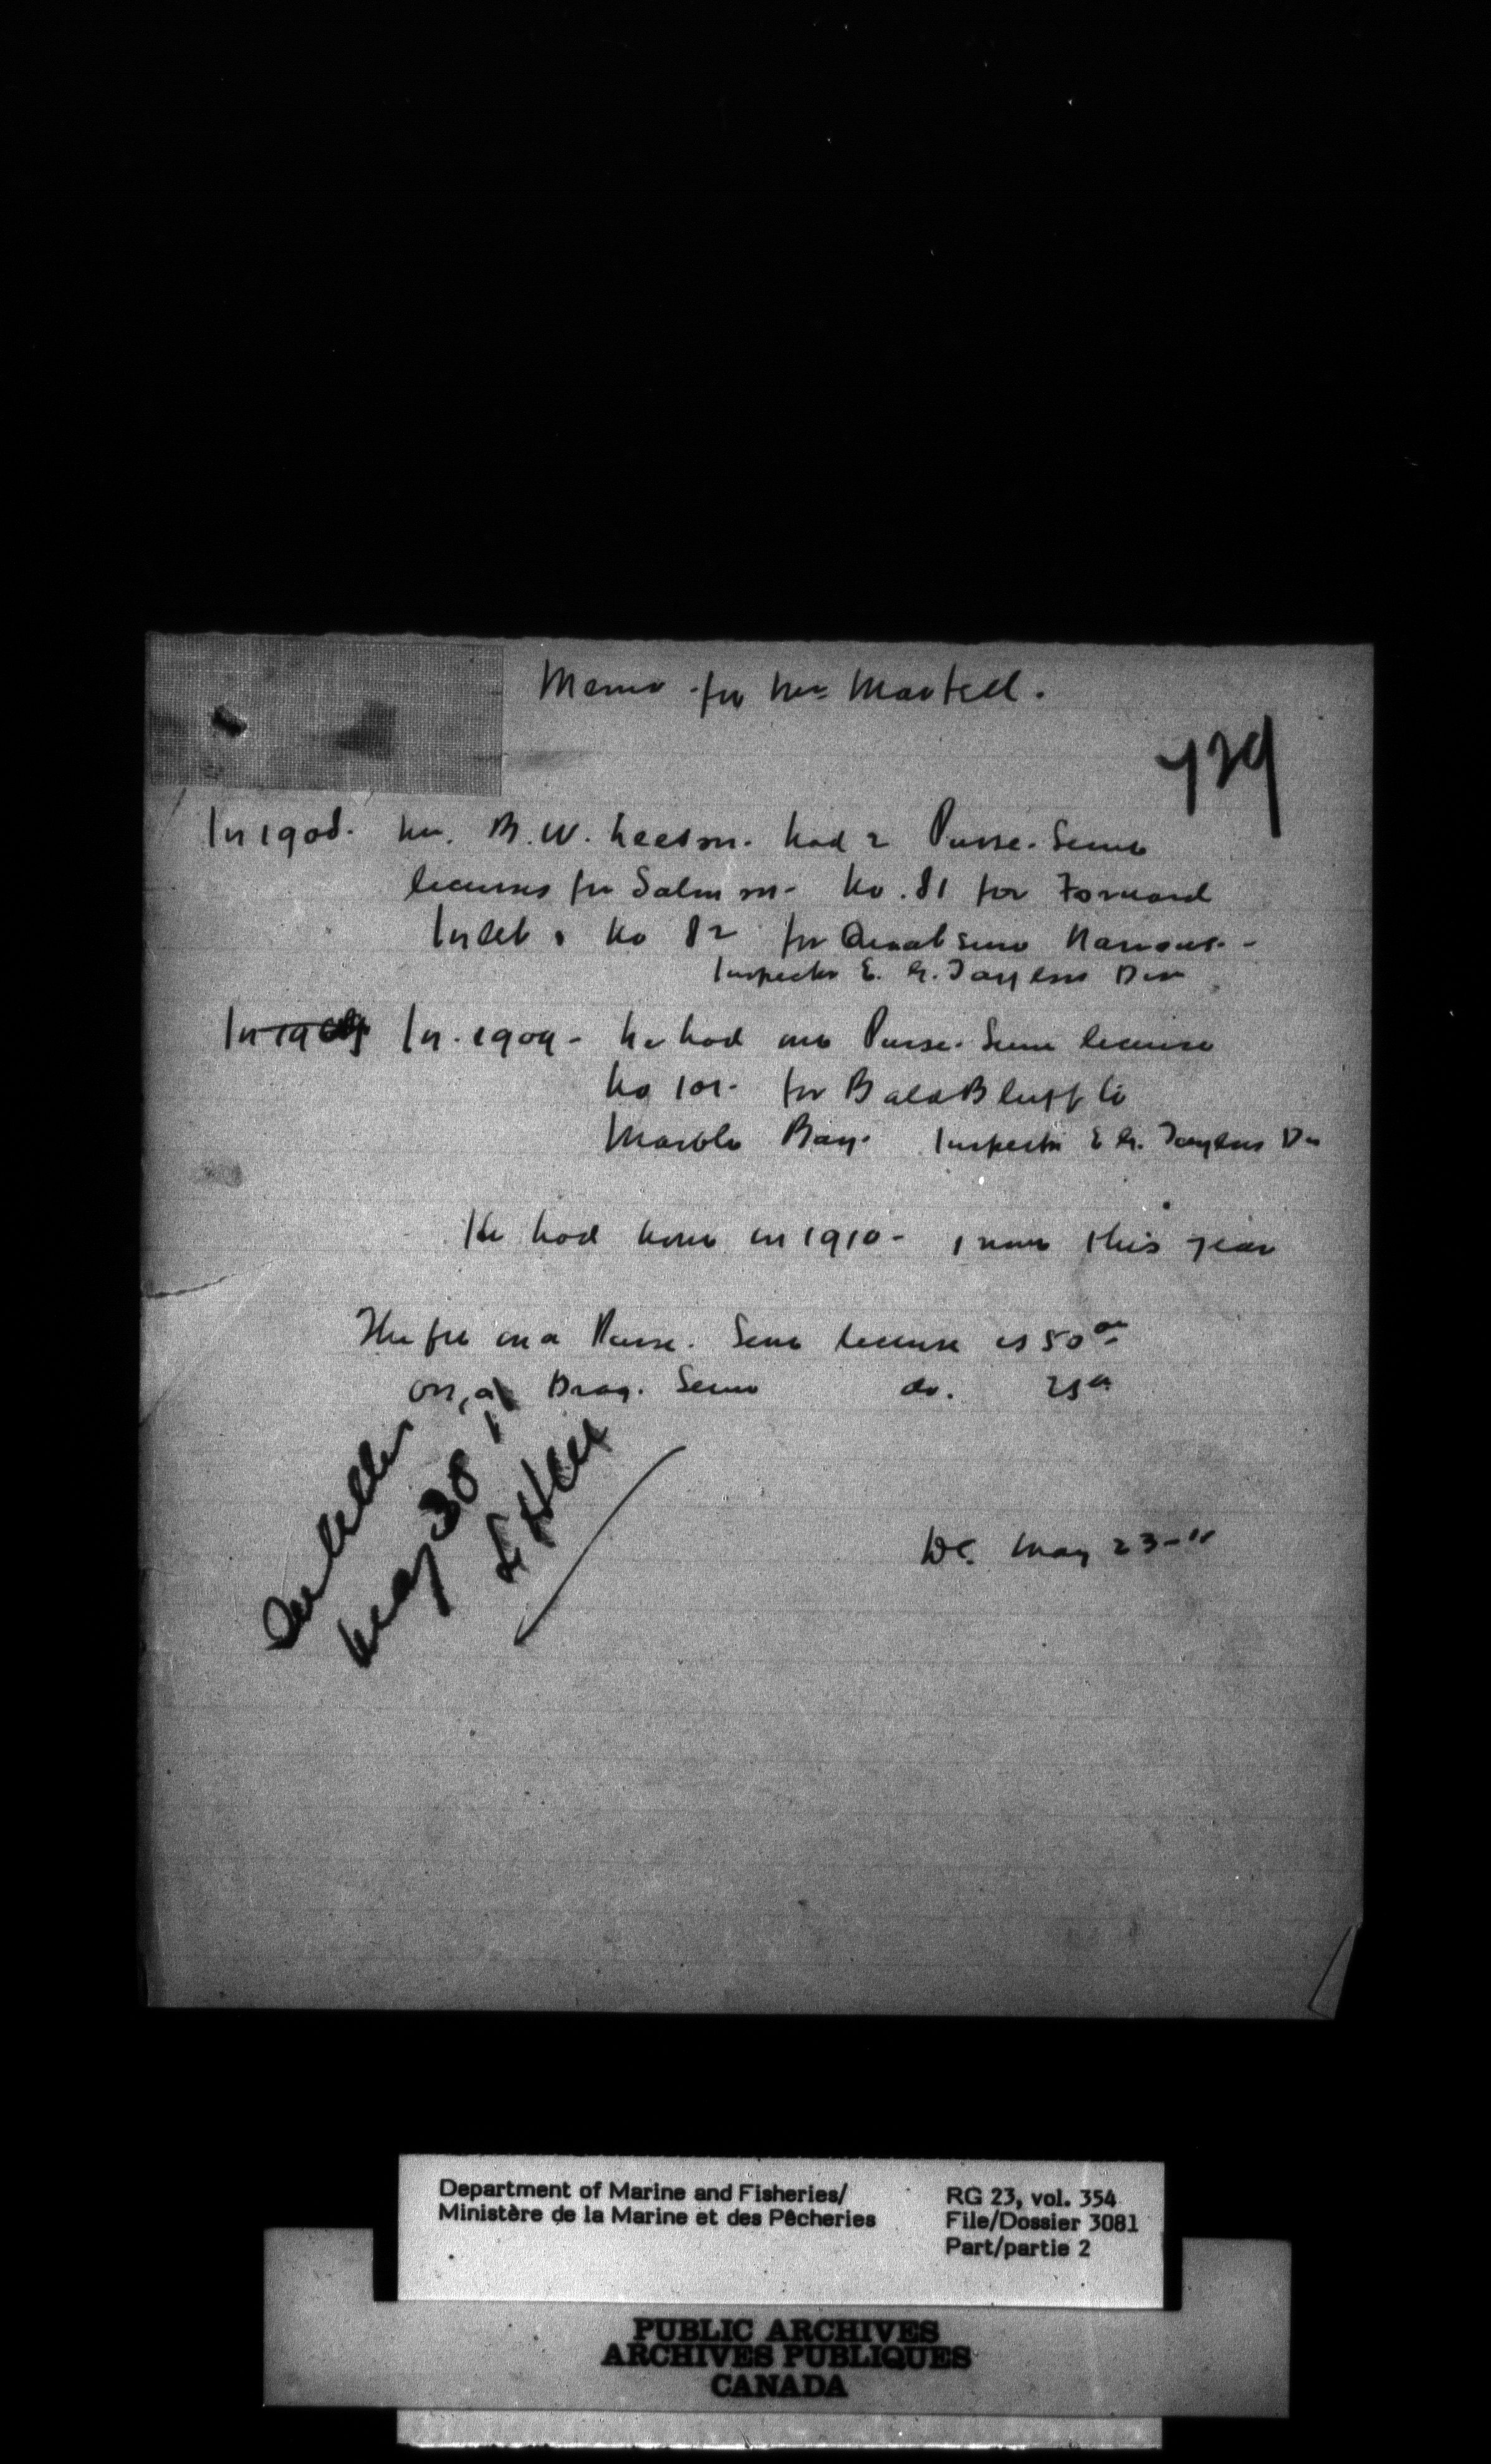 Memo for Mr. Martell.
729
In 1908. Mr. B. W. Leeson. had 2 Purse. Seine
licenses for Salmon - No. 81 for Forward
Inlet & No 82 for Quatsino Narrows. -
Inspector E. G. Taylors Div
In 1909 In. 1909 - he had one Purse. Seine license
No 101 - for Bald Bluff to
Marble Bay. Inspector E G. Taylors Div
He had none in 1910 - & none this year
The fee on a Purse. Seine license is 50 00
on a Drag. Seine do. 25 00
See letter
May 30 '11
to
May 23 - 11
Department of Marine and Fisheries/
Ministère de la Marine et des Pêcheries
RG 23, vol. 354
File/Dossier 3081
Part/partie 2
PUBLIC ARCHIVES
ARCHIVES PUBLIQUES
CANADA